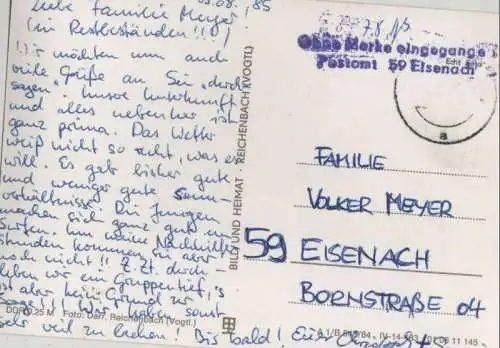 05.08.'85
Liebe Familie Meyer!
(in Restbeständen!!!)
Wir möchten nun auch
viele Grüße an Sie
sagen. Unsere Unterkunft
und alles nebenher ist
ganz prima. Das Wetter
weiß nicht so recht, was es
will. Es gab bisher gute
und weniger gute
verhältnisse. Die Jungen
machen sich ganz gut im
Surfen. Nachhilfe
stunden kommen sie aber
noch nicht!! Z.Zt. durch-
leben wir ein Gruppentief,
ist aber kein Grund zur
Wir haben sonst
sehr viel zu lachen! Bis bald! Eure
DDR 0.25 M Foto: Darr, Reichenbach (Vogtl.)
BILD UND HEIMAT · REICHENBACH (VOGTL)
Ohne Marke eingegangen
Postamt 59 Eisenach
Echt Foto
a
FAMILIE
VOLKER MEYER
59 EISENACH
BORNSTRAßE 04
01 06 11 145